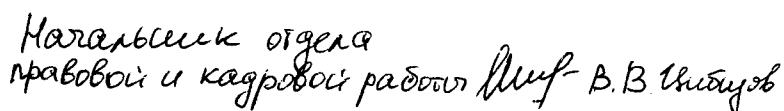 Начальник отдела
правовой и кадровой работы В.В.